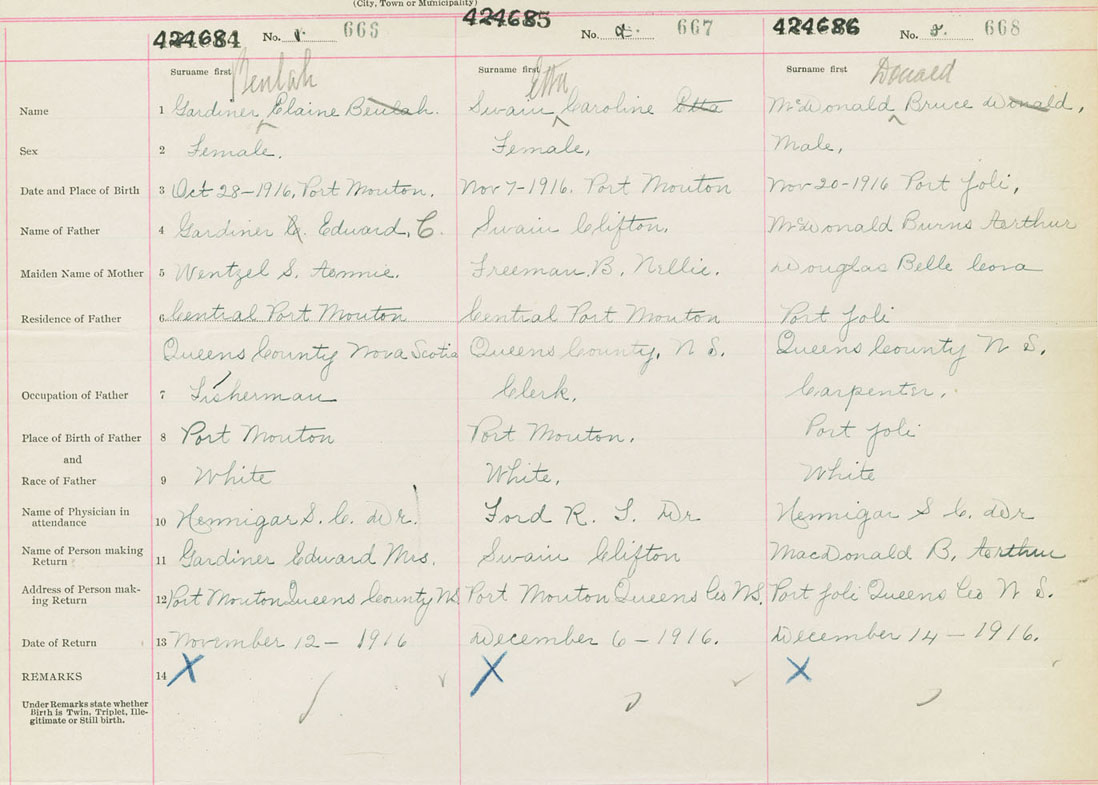 (City, Town or Municipality)
424684 No. 1. 665
424685 No. 2. 667
424686 No. 3. 668
Surname first Beulah
Surname first Etta
Surname first Donald
Name 1 Gardiner, Elaine Beulah. Swain Caroline Etta McDonald Bruce Donald,
Sex 2 Female. Female, Male,
Date and Place of Birth 3 Oct 28-1916, Port Mouton. Nov 7-1916. Port Mouton Nov-20-1916 Port Joli,
Name of Father 4 Gardiner C. Edward, C. Swain Clifton. McDonald Burns Aerthur
Maiden Name of Mother 5 Wentzel S. Aennie. Freeman, B. Nellie. Douglas Belle Cora
Residence of Father 6 Central Port Mouton Central Port Mouton Port Joli
Queens County Nova Scotia Queens County, N S. Queens County N S.
Occupation of Father 7 Fisherman Clerk, Carpenter,
Place of Birth of Father 8 Port Mouton Port Mouton. Port Joli
and
Race of Father 9 White White, White
Name of Physician in attendance 10 Hennigar S. C. Dr. Ford R. T. Dr Hennigar S C. Dr
Name of Person making Return 11 Gardiner Edward Mrs. Swain Clifton MacDonald B. Aerthur
Address of Person making Return 12 Port Mouton Queens County NS Port Mouton Queens Co NS. Port Joli Queens Co N S.
Date of Return 13 November 12- 1916 December 6-1916. December 14-1916.
REMARKS 14 X X X
Under Remarks state whether
Birth is Twin, Triplet, Ille-
gitimate or Still birth.